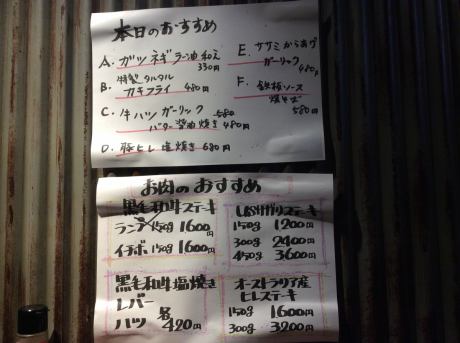 本日のおすすめ
A. ガツ ネギラー油和え
330円
B. 特製タルタル
カキフライ 480円
C. 牛ハツ ガーリック 580
バター醤油焼き 480円
D. 豚ヒレ塩焼き 680円
E. ササミからあげ
ガーリック 480円
F. 鉄板ソース
焼そば
580円
お肉のおすすめ
黒毛和牛ステーキ
150g 1600円
イチボ 150g 1600円
USサガリステーキ
150g 1200円
300g 2400円
450g 3600円
黒毛和牛塩焼き
レバー
ハツ 各420円
オーストラリア産
ヒレステーキ
150g 1600円
300g 3200円